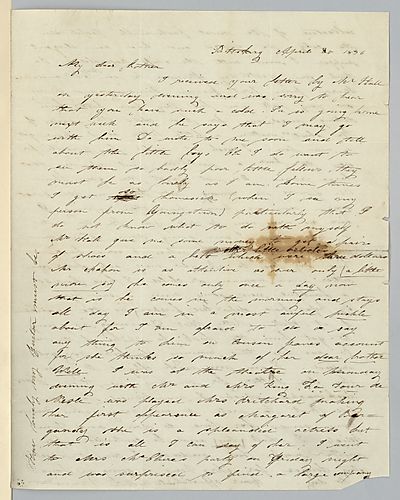 Pittsburg April 30 1836
My dear Mother
I received your letter by Mr Hall
on yesterday evening and was sorry to hear
that you have such a cold he is going home
next week and he says that I may go
with him Do write to me soon and tell
about the little boys Oh I do want to
see them so badly poor little fellows they
must be as lonely as I am some times
I get so homesick (when I see any
person from Youngstown) particularly that I
do not know what to do with myself
Mr gave me some money to get a pair
of shoes and a belt which were three dollars
Mr is as attentive as ever only (a little
more so) he comes only once a day now
that is he comes in the morning and stays
all day I am in a most awful pickle
about for I am afraid to do or say
any thing to him on Cousin Janes account
for she thinks so much of her dear brother
Will I was at the theatre on Wednesday
evening with Mr and Mrs King La Tour de
Nesle was played Mrs Pritchard making
her first appearance as Margaret of Bur=
gundy she is a splendid actress but
that is all I can say of her I went
to Mrs party on Friday night
and was surprised to find a large company
how lonely my sister must be